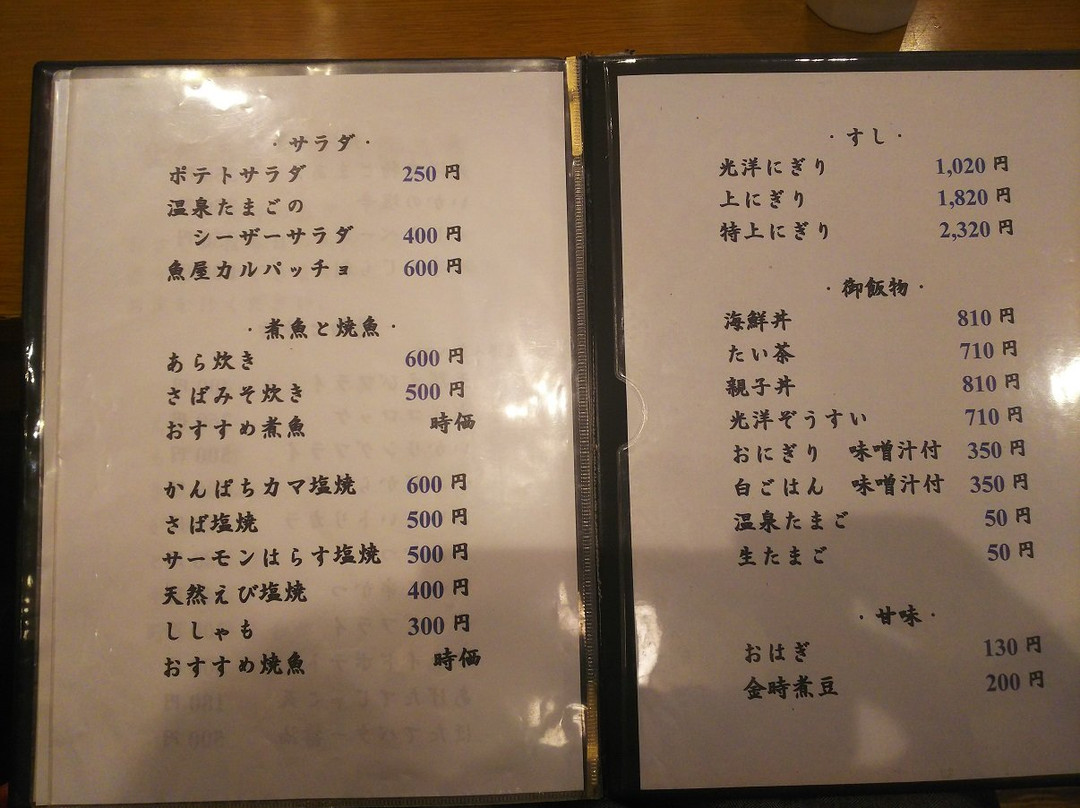 ・サラダ・
ポテトサラダ 250円
温泉たまごの
シーザーサラダ 400円
魚屋カルパッチョ 600円
・煮魚と焼魚・
あら炊き 600円
さばみそ炊き 500円
おすすめ煮魚 時価
かんぱちカマ塩焼 600円
さば塩焼 500円
サーモンはらす塩焼 500円
天然えび塩焼 400円
ししゃも 300円
おすすめ焼魚 時価
・すし・
光洋にぎり 1,020円
上にぎり 1,820円
特上にぎり 2,320円
・御飯物・
海鮮丼 810円
たい茶 710円
親子丼 810円
光洋ぞうすい 710円
おにぎり 味噌汁付 350円
白ごはん 味噌汁付 350円
温泉たまご 50円
生たまご 50円
・甘味・
おはぎ 130円
金時煮豆 200円